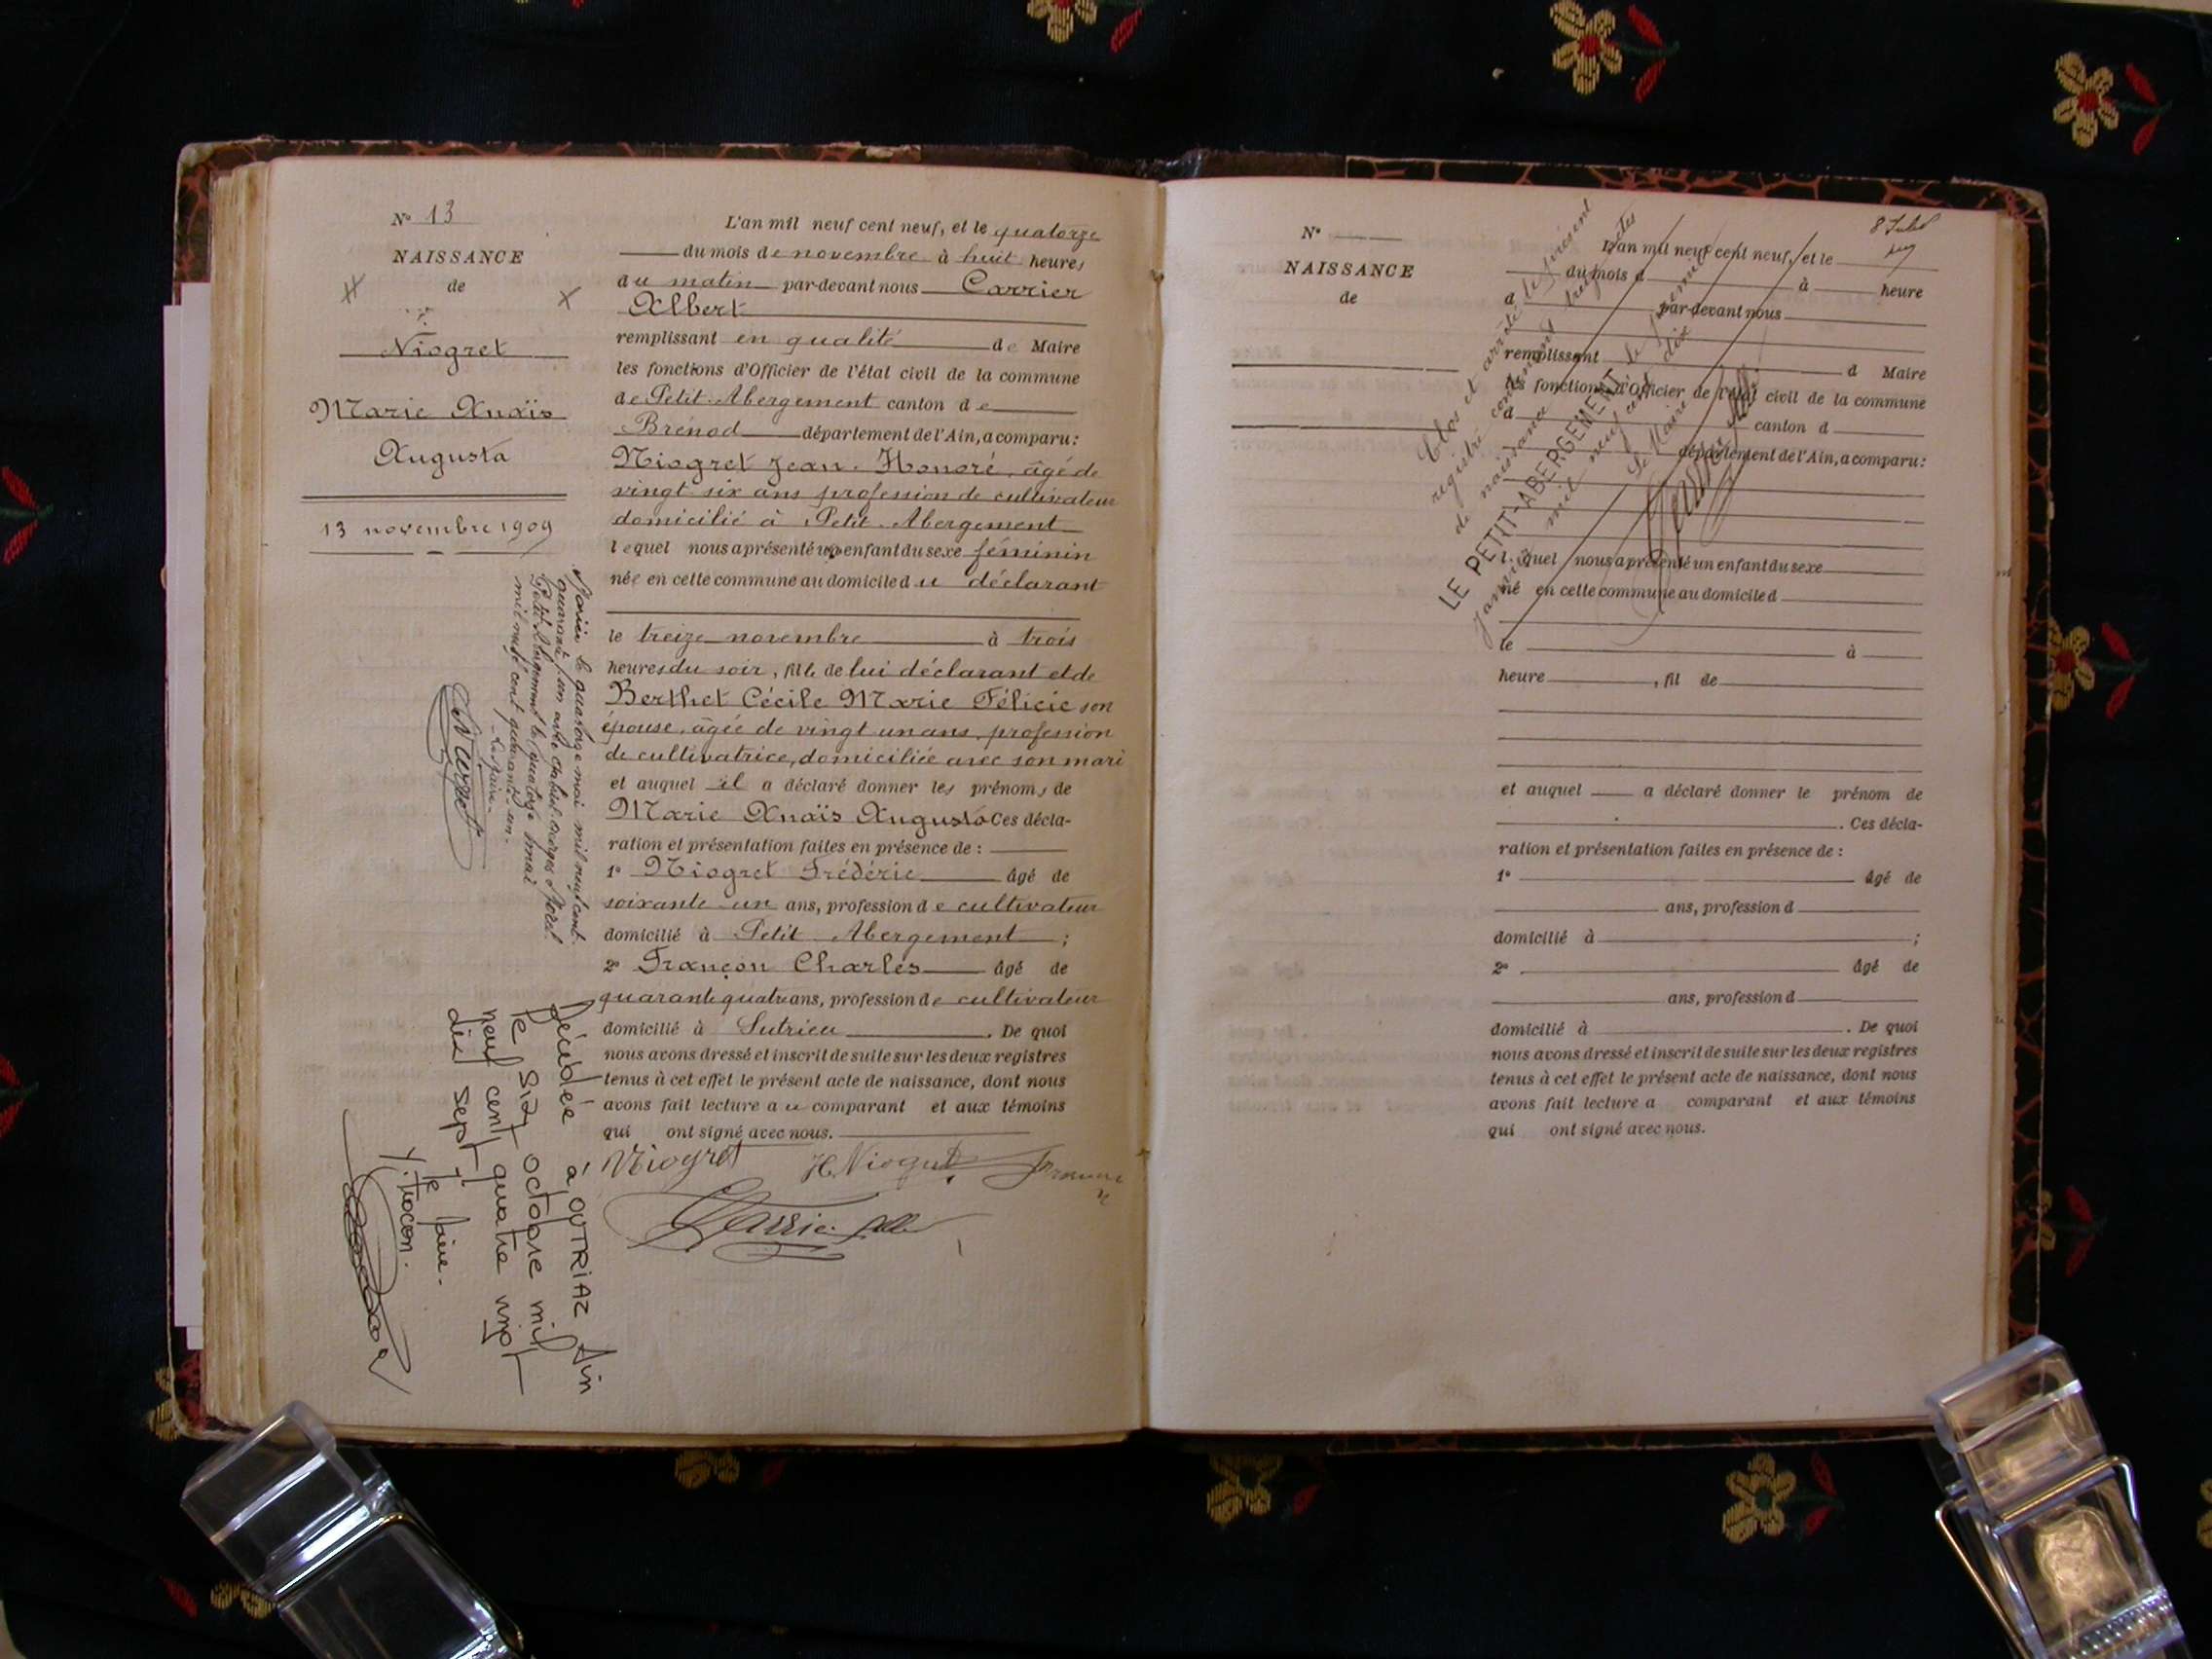 N° 13
NAISSANCE
de
Niogret
Marie Anaïs
Augusta
13 novembre 1909
L'an mil neuf cent neuf, et le quatorze
du mois de novembre à huit heures
du matin par-devant nous Carrier
Albert
remplissant en qualité de Maire
les fonctions d'Officier de l'état civil de la commune
de Petit-Abergement canton de
Brénod département de l'Ain, a comparu:
Niogret Jean-Honoré, âgé de
vingt-six ans profession de cultivateur
domicilié à Petit-Abergement
lequel nous a présenté un enfant du sexe féminin
née en cette commune au domicile du déclarant
le treize novembre à trois
heures du soir, fille de lui déclarant et de
Berthet Cécile Marie Félicie son
épouse, âgée de vingt un ans, profession
de cultivatrice, domiciliée avec son mari
et auquel il a déclaré donner les prénoms de
Marie Anaïs Augusta Ces décla-
ration et présentation faites en présence de :
1° Niogret Frédéric âgé de
soixante-un ans, profession de cultivateur
domicilié à Petit-Abergement ;
2° Françon Charles âgé de
quarante quatre ans, profession de cultivateur
domicilié à Sutrieu . De quoi
nous avons dressé et inscrit de suite sur les deux registres
tenus à cet effet le présent acte de naissance, dont nous
avons fait lecture au comparant et aux témoins
qui ont signé avec nous.
Niogret H. Niogret
le quatorze mai mil neuf cent
quarante un avec
Petit Abergement le quatorze mai
mil neuf cent quarante-un.
Le Maire
Décédée à OUTRIAZ Ain
le six octobre mil
neuf cent quatre vingt
dix sept
Le Maire.
N°
NAISSANCE
de
L'an mil neuf cent neuf, et le
du mois d à heure
d par-devant nous
remplissant d Maire
les fonctions d'Officier de l'état civil de la commune
d canton d
département de l'Ain, a comparu:
l quel nous a présenté un enfant du sexe
né en cette commune au domicile d
le à
heure , fil de
et auquel a déclaré donner le prénom de
. Ces décla-
ration et présentation faites en présence de :
1° âgé de
ans, profession d
domicilié à ;
2° âgé de
ans, profession d
domicilié à . De quoi
nous avons dressé et inscrit de suite sur les deux registres
tenus à cet effet le présent acte de naissance, dont nous
avons fait lecture a comparant et aux témoins
qui ont signé avec nous.
Clos et arrêté le présent
registre contenant treize actes
de naissance
LE PETIT-ABERGEMENT le premier
janvier mil neuf cent dix
Le Maire